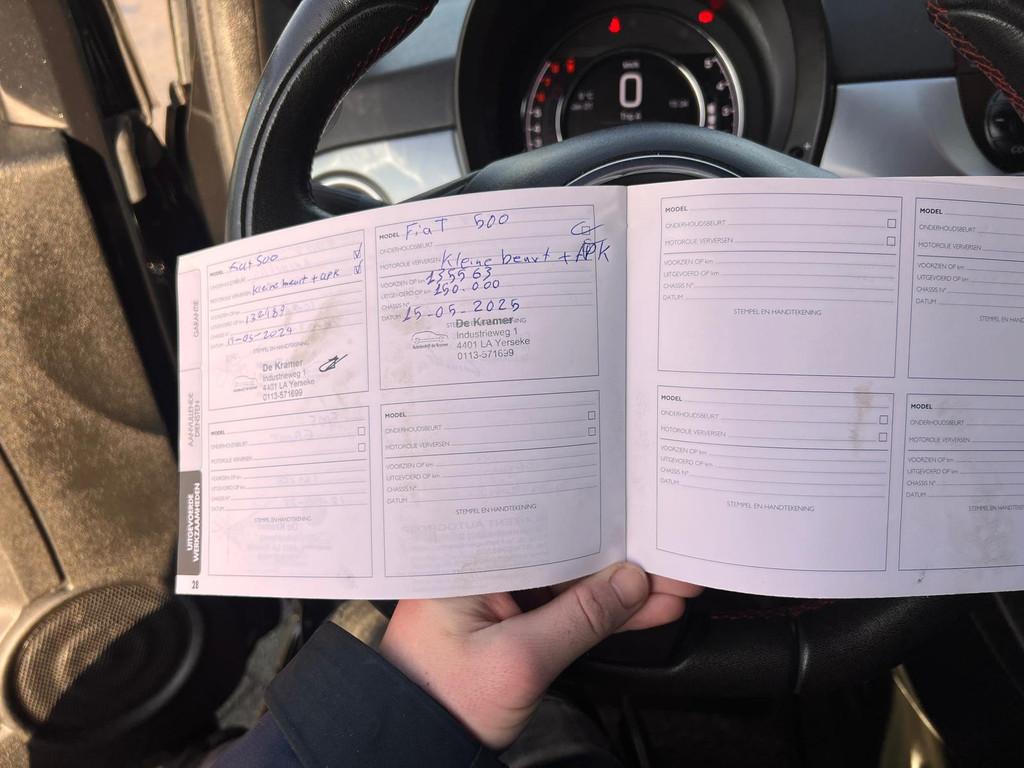 km/h
0
Trip A
GARANTIE
AANVULLENDE
DIENSTEN
UITGEVOERDE
WERKZAAMHEDEN
28
MODEL
ONDERHOUDSBEURT
MOTOROLIE VERVERSEN kleine beurt + APK
VOORZIEN OP km
UITGEVOERD OP km 132183
CHASSIS N°
DATUM 05-2024
STEMPEL EN HANDTEKENING
De Kramer
Industrieweg 1
4401 LA Yerseke
0113-571699
MODEL FiaT 500
ONDERHOUDSBEURT
MOTOROLIE VERVERSEN kleine beurt + APK
VOORZIEN OP km 135563
UITGEVOERD OP km 150.000
CHASSIS N°
DATUM 15-05-2025
STEMPEL EN HANDTEKENING
De Kramer
Industrieweg 1
4401 LA Yerseke
0113-571699
MODEL
ONDERHOUDSBEURT
MOTOROLIE VERVERSEN
VOORZIEN OP km
UITGEVOERD OP km
CHASSIS N°
DATUM
STEMPEL EN HANDTEKENING
MODEL
ONDERHOUDSBEURT
MOTOROLIE VERVERSEN
VOORZIEN OP km
UITGEVOERD OP km
CHASSIS N°
DATUM
STEMPEL EN HANDTEKENING
MODEL
ONDERHOUDSBEURT
MOTOROLIE VERVERSEN
VOORZIEN OP km
UITGEVOERD OP km
CHASSIS N°
DATUM
STEMPEL EN HANDTEKENING
MODEL
ONDERHOUDSBEURT
MOTOROLIE VERVERSEN
VOORZIEN OP km
UITGEVOERD OP km
CHASSIS N°
DATUM
STEMPEL EN HANDTEKENING
MODEL
ONDERHOUDSBEURT
MOTOROLIE VERVERSEN
VOORZIEN OP km
UITGEVOERD OP km
CHASSIS N°
DATUM
MODEL
ONDERHOUDSBEURT
MOTOROLIE VERVERSEN
VOORZIEN OP km
UITGEVOERD OP km
CHASSIS N°
DATUM